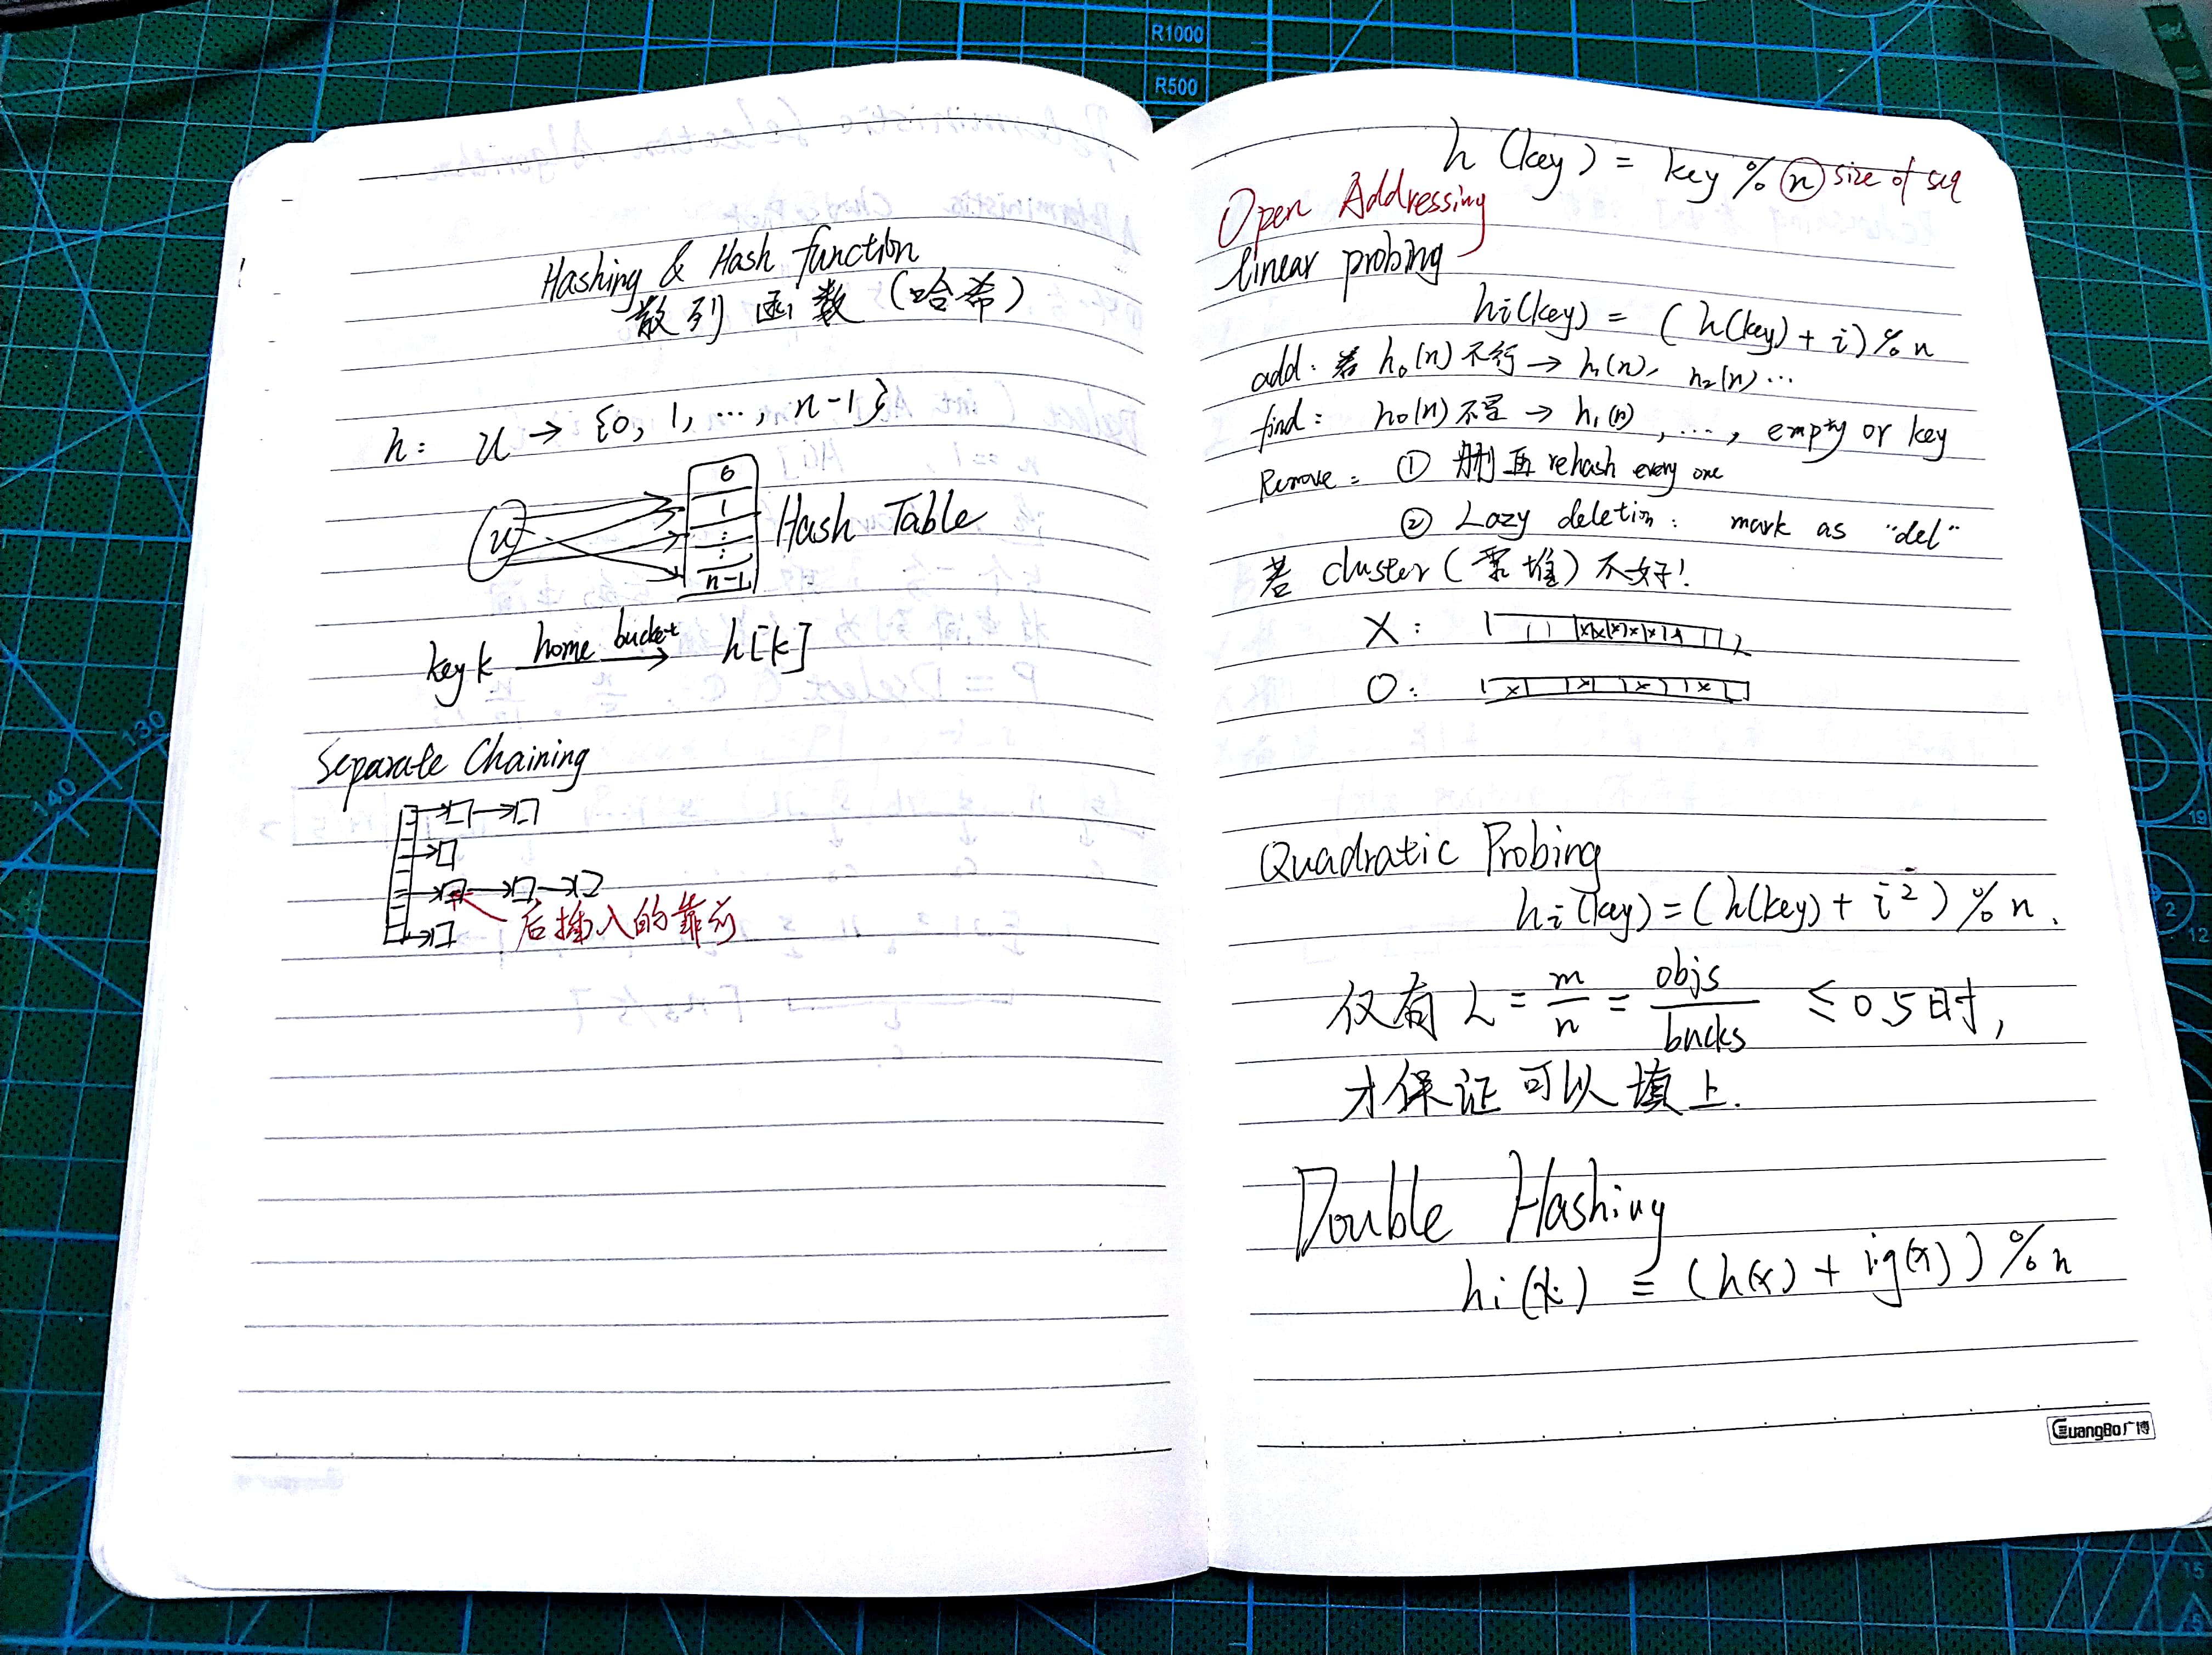 Hashing & Hash function
散列函数(哈希)
h: U → {0, 1, ..., n-1}
u
0
1
:
:
n-1
Hash Table
key k home bucket h[k]
Separate Chaining
后插入的靠前
h (key) = key % n size of seq
Open Addressing
linear probing
hi(key) = (h(key) + i) % n
add: 若 h0(n) 不行 → h1(n), h2(n) ...
find: h0(n) 不是 → h1(n), ..., empty or key
Remove: ① 删再 rehash every one
② Lazy deletion: mark as "del"
若 cluster (聚堆) 不好!
X:
O:
Quadratic Probing
hi(key) = (h(key) + i²) % n.
仅有 L = m/n = objs/bucks ≤ 0.5时,
才保证可以填上.
Double Hashing
hi(x) = (h(x) + ig(x)) % n
GuangBo广博
R1000
R500
130
140
19
2
12
15